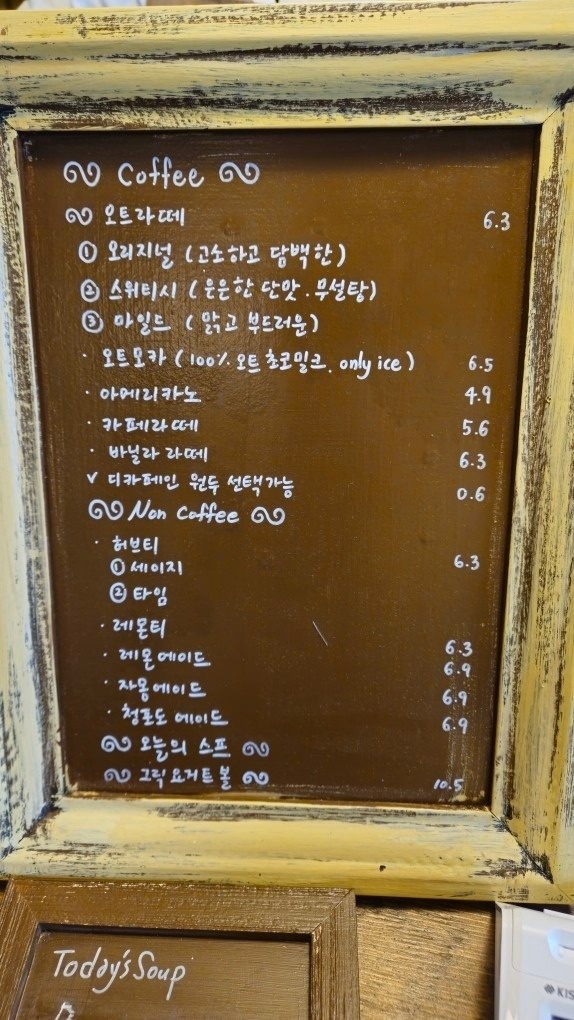 Coffee
오트라떼 6.3
① 오리지널 (고소하고 담백한)
② 스위티시 (은은한 단맛. 무설탕)
③ 마일드 (맑고 부드러운)
· 오트모카 (100% 오트초코밀크. only ice) 6.5
· 아메리카노 4.9
· 카페라떼 5.6
· 바닐라 라떼 6.3
v 디카페인 원두 선택가능 0.6
Non Coffee
· 허브티
① 세이지 6.3
② 타임
· 레몬티 6.3
· 레몬에이드 6.9
· 자몽에이드 6.9
· 청포도 에이드 6.9
오늘의 스프
그릭요거트볼 10.5
Today's Soup
KIS